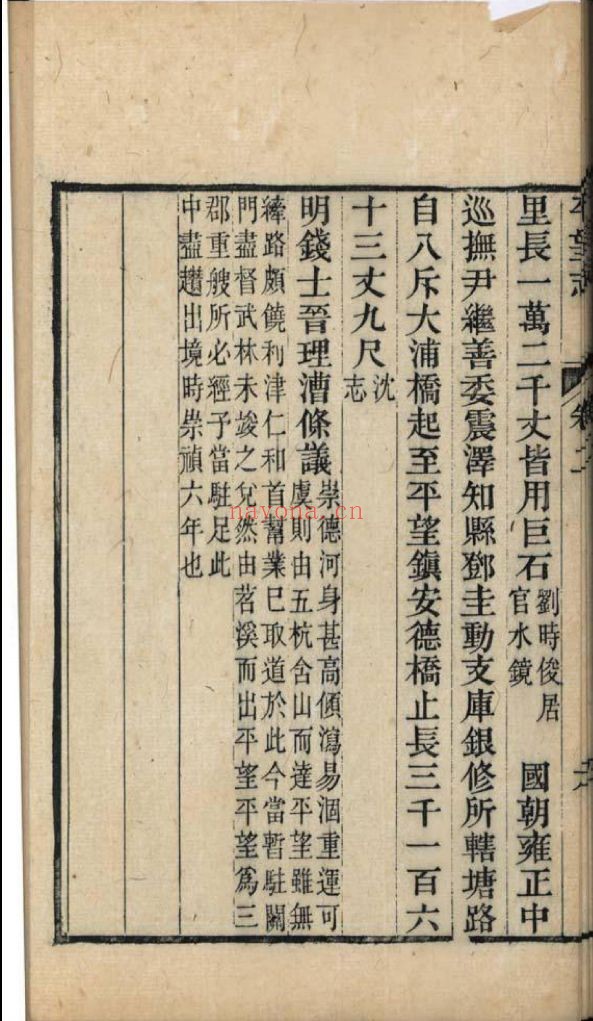 平望志
卷二
里長一萬二千丈皆用巨石劉時俊居
官水鏡
國朝雍正中
巡撫尹繼善委震澤知縣鄧圭動支庫銀修所轄塘路
自八斥大浦橋起至平望鎮安德橋止長三千一百六
十三丈九尺沈
志
明錢士晉理漕條議崇德河身甚高傾瀉易涸重運可
虞則由五杭含山而達平望雖無
縴路頗饒利津仁和首幫業已取道於此今當暫駐關
門盡督武林未竣之兌然由苕溪而出平望平望爲三
郡重艘所必經予當駐足此
中盡趲出境時崇禎六年也
nayona.cn